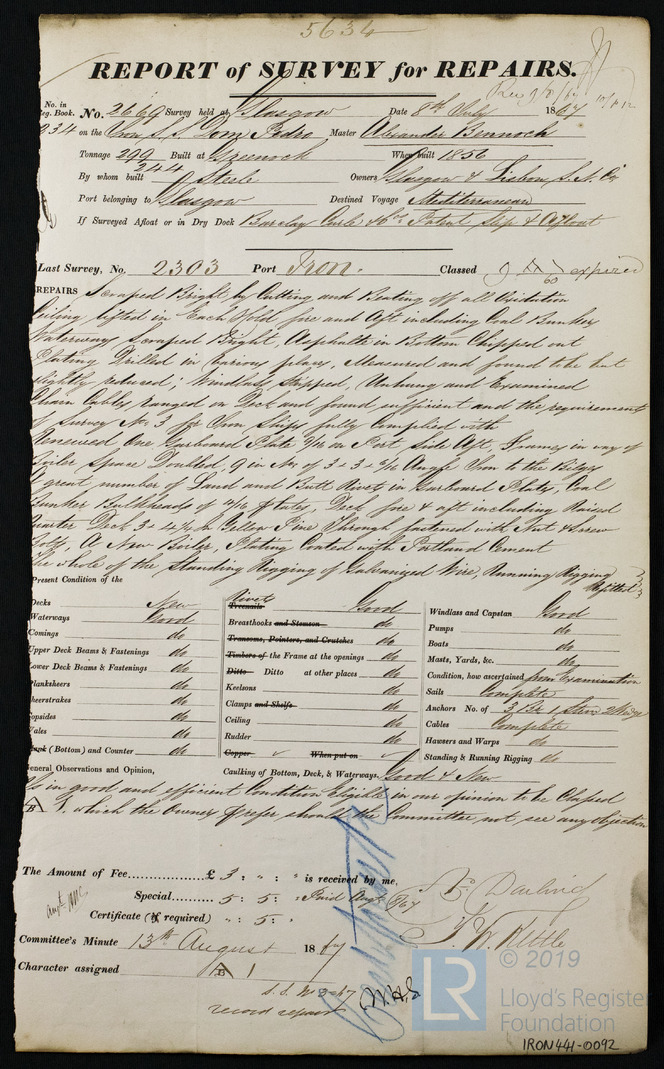 5634
REPORT of SURVEY for REPAIRS.
No. in Reg. Book. No. 2669 Survey held at Glasgow Date 8th July 1867
934 on the Iron S.S. Dom Pedro Master Alexander Bennoch
Tonnage 299 Built at Greenock When built 1856
244
By whom built Steele Owners Glasgow & Lisbon S. N. Co
Port belonging to Glasgow Destined Voyage Mediterranean
If Surveyed Afloat or in Dry Dock Barclay Curle & Co's Patent Slip & Afloat
Last Survey, No. 2303 Port Iron. Classed 9 A 60 expired
REPAIRS Scraped Bright by Cutting and Beating off all Oxidation
Ceiling lifted in Each Hold, fore and Aft including Coal Bunker
Waterways Scraped Bright, Asphalte in Bottom Chipped out
Plating Drilled in various places, Measured and found to be but
slightly reduced; Windlass Stripped, Unhung and Examined
Chain Cables ranged on Deck and found sufficient and the requirements
of Survey No. 3 for Iron Ships fully complied with
Renewed One Garboard Plate 9/16 on Port Side Aft, Frames in way of
Boiler Space Doubled, 9 in No. of 3 + 3 + 6/16 Angle Iron to the Bilges
A great number of Land and Butt Rivets in Garboard Plates, Coal
Bunker Bulkheads of 4/16 Plates, Deck fore & aft including Raised
Quarter Deck 3 + 4½ in Yellow Pine Through fastened with Nut & Screw
Bolts, A New Boiler, Plating Coated with Portland Cement
The whole of the Standing Rigging of Galvanized Wire, Running Rigging
Refitted
Present Condition of the
Decks New
Waterways Good
Comings do
Upper Deck Beams & Fastenings do
Lower Deck Beams & Fastenings do
Planksheers do
Sheerstrakes do
Topsides do
Wales do
Plank (Bottom) and Counter do
Rivets
Treenails Good
Breasthooks and Stemson do
Transoms, Pointers, and Crutches do
Timbers of the Frame at the openings do
Ditto Ditto at other places do
Keelsons do
Clamps and Shelfs do
Ceiling do
Rudder do
Copper When put on
Caulking of Bottom, Deck, & Waterways. Good & New
Windlass and Capstan Good
Pumps do
Boats do
Masts, Yards, &c. do
Condition, how ascertained from Examination
Sails Complete
Anchors No. of 3 Br 1 Stern 2 Kedge
Cables Complete
Hawsers and Warps do
Standing & Running Rigging do
General Observations and Opinion,
Is in good and efficient Condition Eligible in our opinion to be Classed
A 1, which the Owners prefer should the Committee not see any objection
The Amount of Fee £ 3 : " : " is received by me,
Special 5 : 5 : " Paid Augt /67
Certificate (if required) " : 5 :
Committee's Minute 13th August 1867
Character assigned A B 1
record repairs
© 2019
LR
Lloyd's Register
Foundation
IRON441-0092